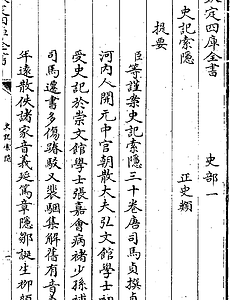 欽定四庫全書
史部一
史記索隱
正史類
提要
臣等謹案史記索隱三十卷唐司馬貞撰貞
河内人開元中官朝散大夫弘文館學士初
受史記於崇文館學士張嘉會病禇少孫補
司馬遷書多傷踳駁又裴駰集解舊有音義
年遠散佚諸家音義延篤章隱鄒誕生柳顧
史記索隱